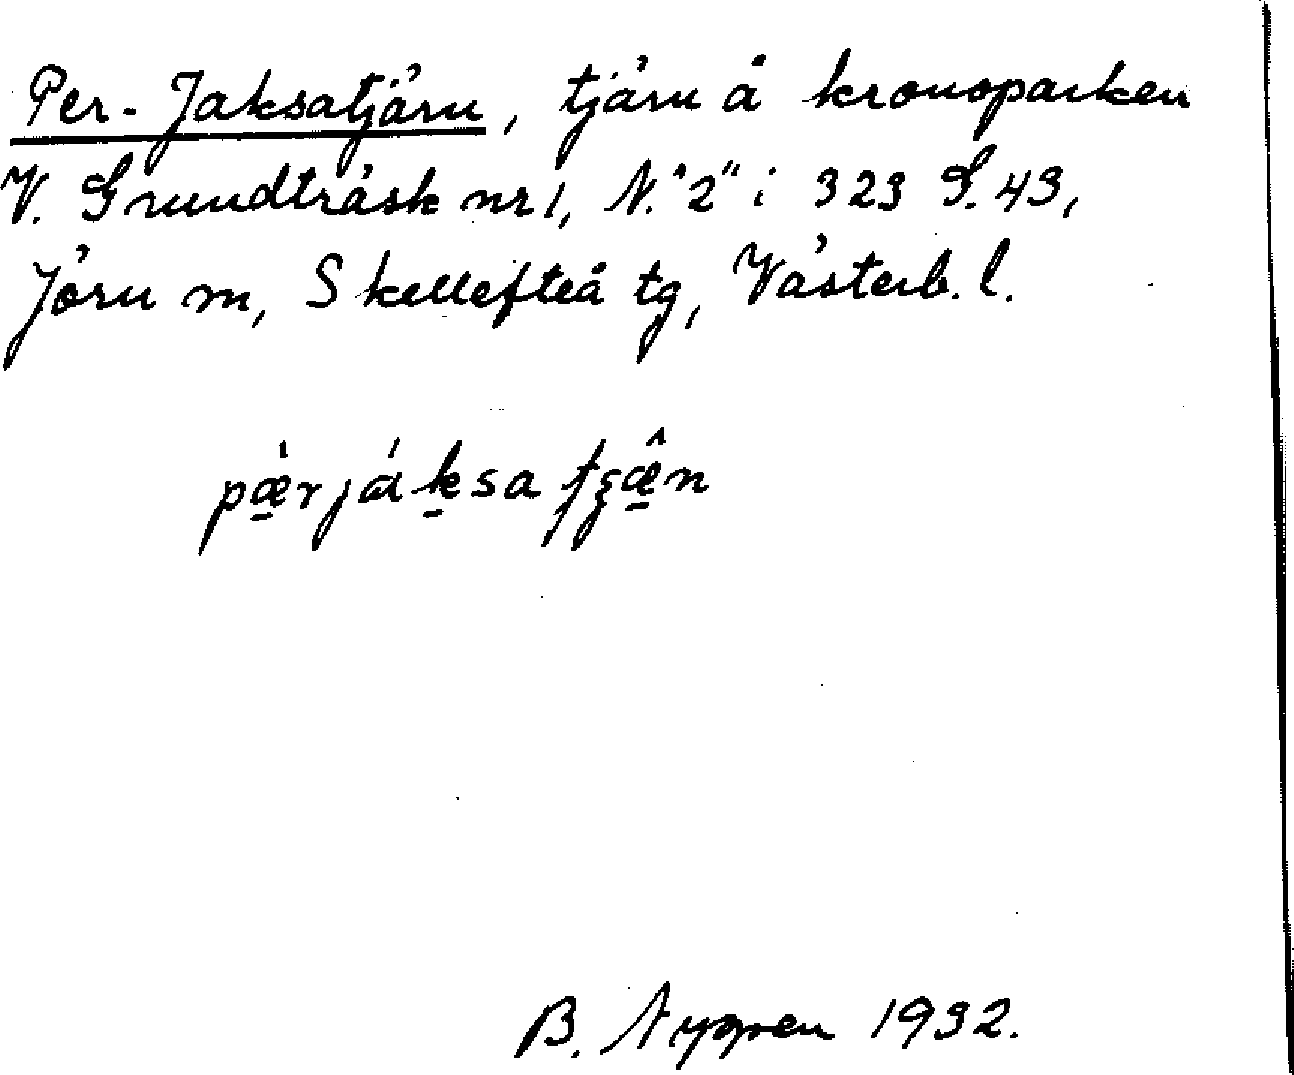 Per-Jaksatjärn, tjärn å kronoparken
V. Grundträsk nr 1, N. "2" i 323 S. 43,
Jörn m, Skellefteå tg, Västerb. l.
pæ̠̀rjáḵsa tʒæ̠̂n
B. Nygren 1932.